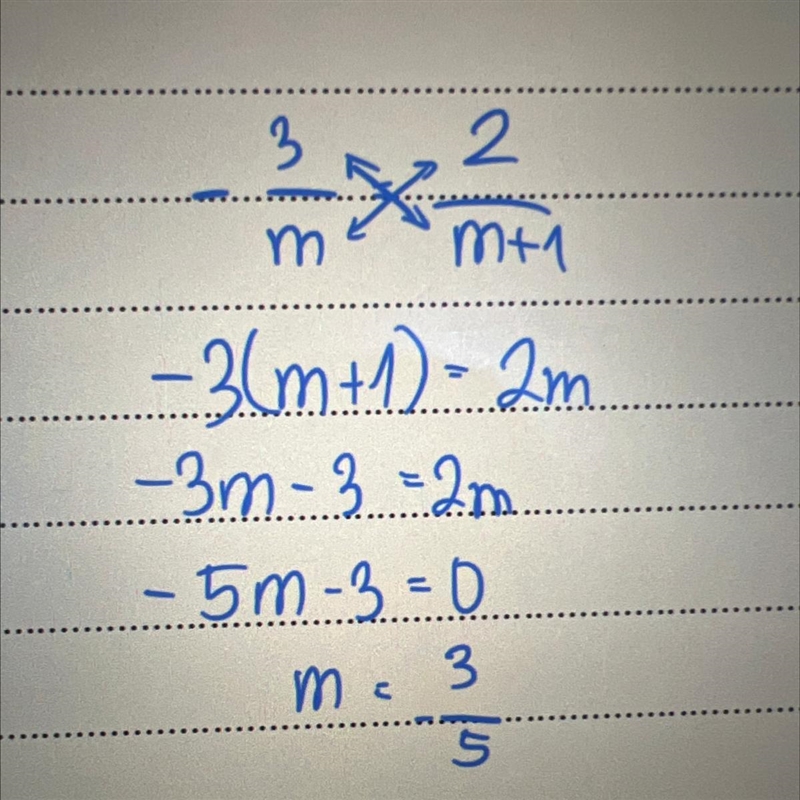 - 3/m = 2/(m+1)
-3(m+1) = 2m
-3m - 3 = 2m
-5m - 3 = 0
m = -3/5